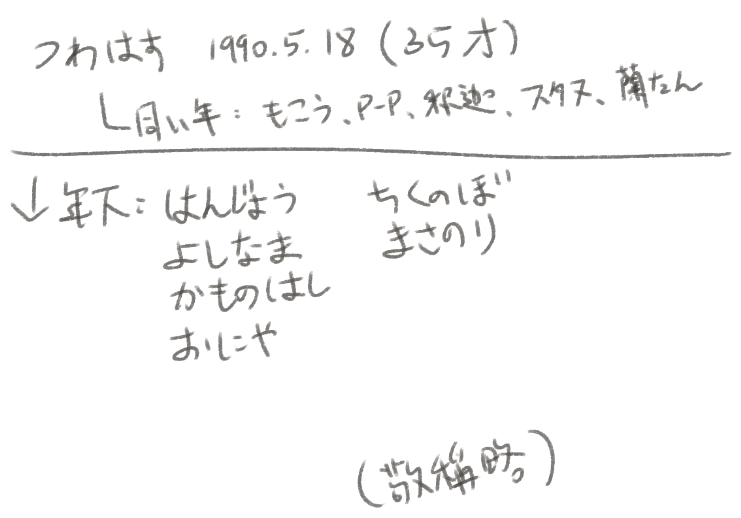 つわはす 1990.5.18 (35才)
└同い年：もこう、P-P、釈迦、スタヌ、蘭たん
↓年下：はんじょう ちくのぼ
よしなま まさのり
かものはし
おにや
(敬称略)